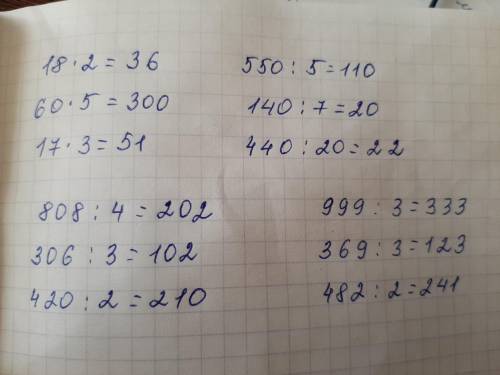 18 · 2 = 36
60 · 5 = 300
17 · 3 = 51
550 : 5 = 110
140 : 7 = 20
440 : 20 = 22
808 : 4 = 202
306 : 3 = 102
420 : 2 = 210
999 : 3 = 333
369 : 3 = 123
482 : 2 = 241